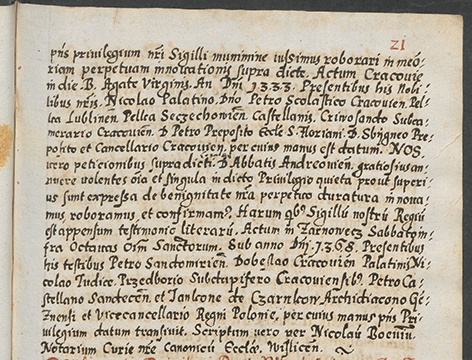 21
pñs privilegium nr̃i Sigilli munimine iussimus roborari in meō:
riam perpetuam innovationis supra dicte. Actum Cracovie
in die B. Agate Virginis. An. Dñi .1333. Presentibus his Nobi:
libus nr̃is. Nicolao Palatino. Dño Petro Scolastico Cracovien. Pel:
Lublinen. Pelca Seczechovien Castellanis. Crivosando Subca:
merario Cracovień. D Petro Preposito Eccle S. Floriani. D. Sbigneo Pre:
posito et Cancellario Cracovień. per cuius manus est datum. NOS
vero peticionibus supradicti. D. Abbatis Andreovien. gratiosius an:
nuere volentes oīa et singula in dicto Privilegio quieta prout superi:
us sunt expressa de benignitate nr̃a perpetuo duratura in nova:
mus, roboramus, et confirmam⁹. Harum qb⁹ Sigillū nostrū Regiū
est appensum testimonio literarū. Actum in Zarnovecz Sabbato in:
fra Octavas Oīm Sanctorum. Sub anno Dñi .1398. Presentibus
his testibus Petro Sandomirien. Dobeslao Cracovien Palatinis Ni:
colao Iudice. Przedborio Subdapifero Cracoviensib⁹. Petro Ca:
stellano Sandecen. et Ianbone de Czarnkow Archidiacono Gē:
znensi et Vicecancellario Regni Polonie, per cuius manus pñs Pri:
vilegium datum transivit. Scriptum vero per Nicolaū
Notarium Curie nr̃e Canonicū Eccłæ. Vislicen.